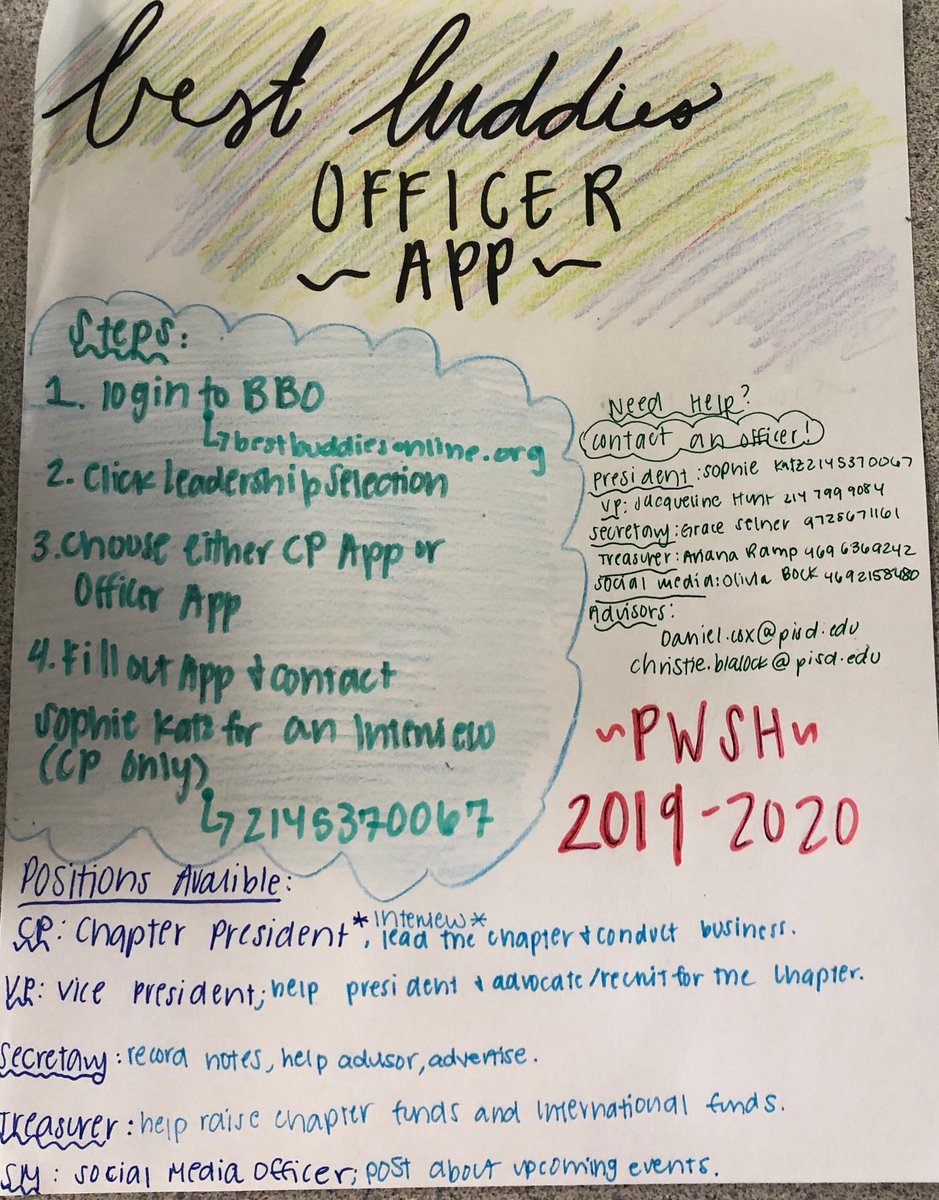 best buddies
OFFICER
~ APP ~
Steps:
1. login to BBO
↳ bestbuddiesonline.org
2. Click leadership selection
3. Choose either CP App or
Officer App
4. Fill out App & contact
Sophie Katz for an Interview
(CP only)
↳ 2145370067
Need Help?
contact an officer!
president: Sophie Katz 2145370067
VP: Jacqueline Hunt 214 799 9084
secretary: Grace Selner 9725671161
Treasurer: Ariana Ramp 469 6369242
social media: Olivia Bock 4692158480
Advisors:
Daniel.cox@pisd.edu
christie.blalock@pisd.edu
~PWSH~
2019-2020
Positions Avalible:
CP: Chapter President *Interview*, lead the chapter & conduct business.
VP: Vice President; help president & advocate/recruit for the chapter.
Secretary: record notes, help advisor, advertise.
Treasurer: help raise chapter funds and International funds.
SM: Social Media Officer; post about upcoming events.